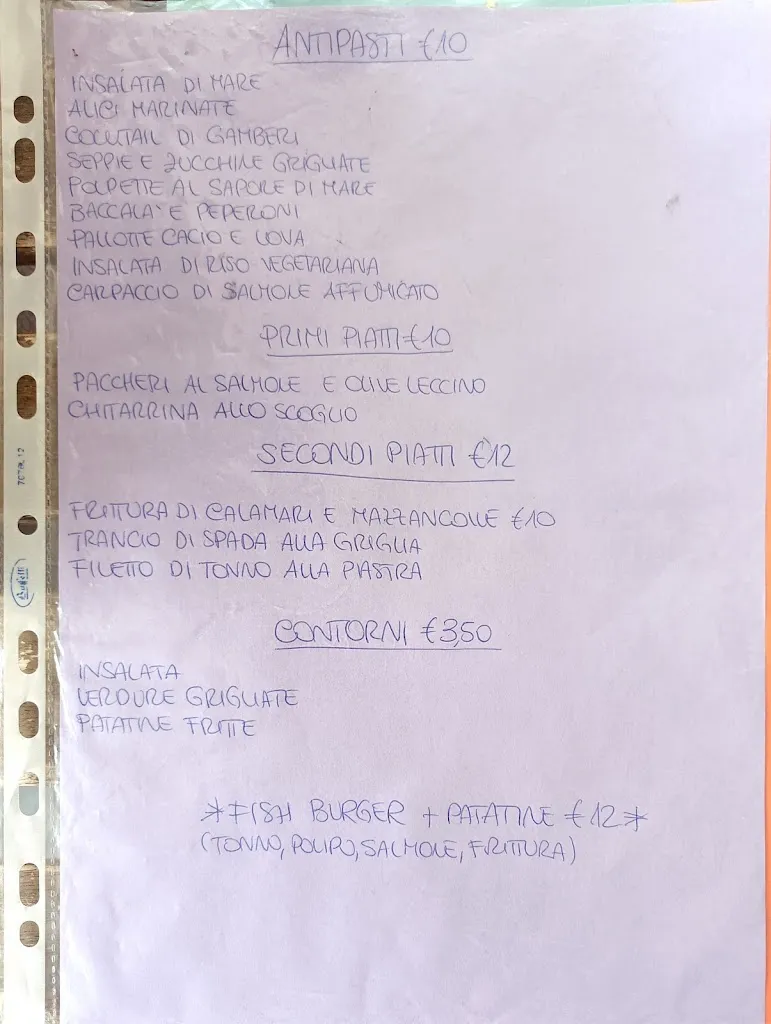 ANTIPASTI €10
INSALATA DI MARE
ALICI MARINATE
COCUTAIL DI GAMBERI
SEPPIE E ZUCCHINE GRIGLIATE
POLPETTE AL SAPORE DI MARE
BACCALA' E PEPERONI
PALLOTTE CACIO E UOVA
INSALATA DI RISO VEGETARIANA
CARPACCIO DI SALMONE AFFUMICATO
PRIMI PIATTI €10
PACCHERI AL SALMONE E OLIVE LECCINO
CHITARRINA ALLO SCOGLIO
SECONDI PIATTI €12
FRITTURA DI CALAMARI E MAZZANCOLLE €10
TRANCIO DI SPADA ALLA GRIGLIA
FILETTO DI TONNO ALLA PIASTRA
CONTORNI €3,50
INSALATA
VERDURE GRIGLIATE
PATATINE FRITTE
*FISH BURGER + PATATINE €12*
(TONNO, POLIPO, SALMONE, FRITTURA)
Buffetti